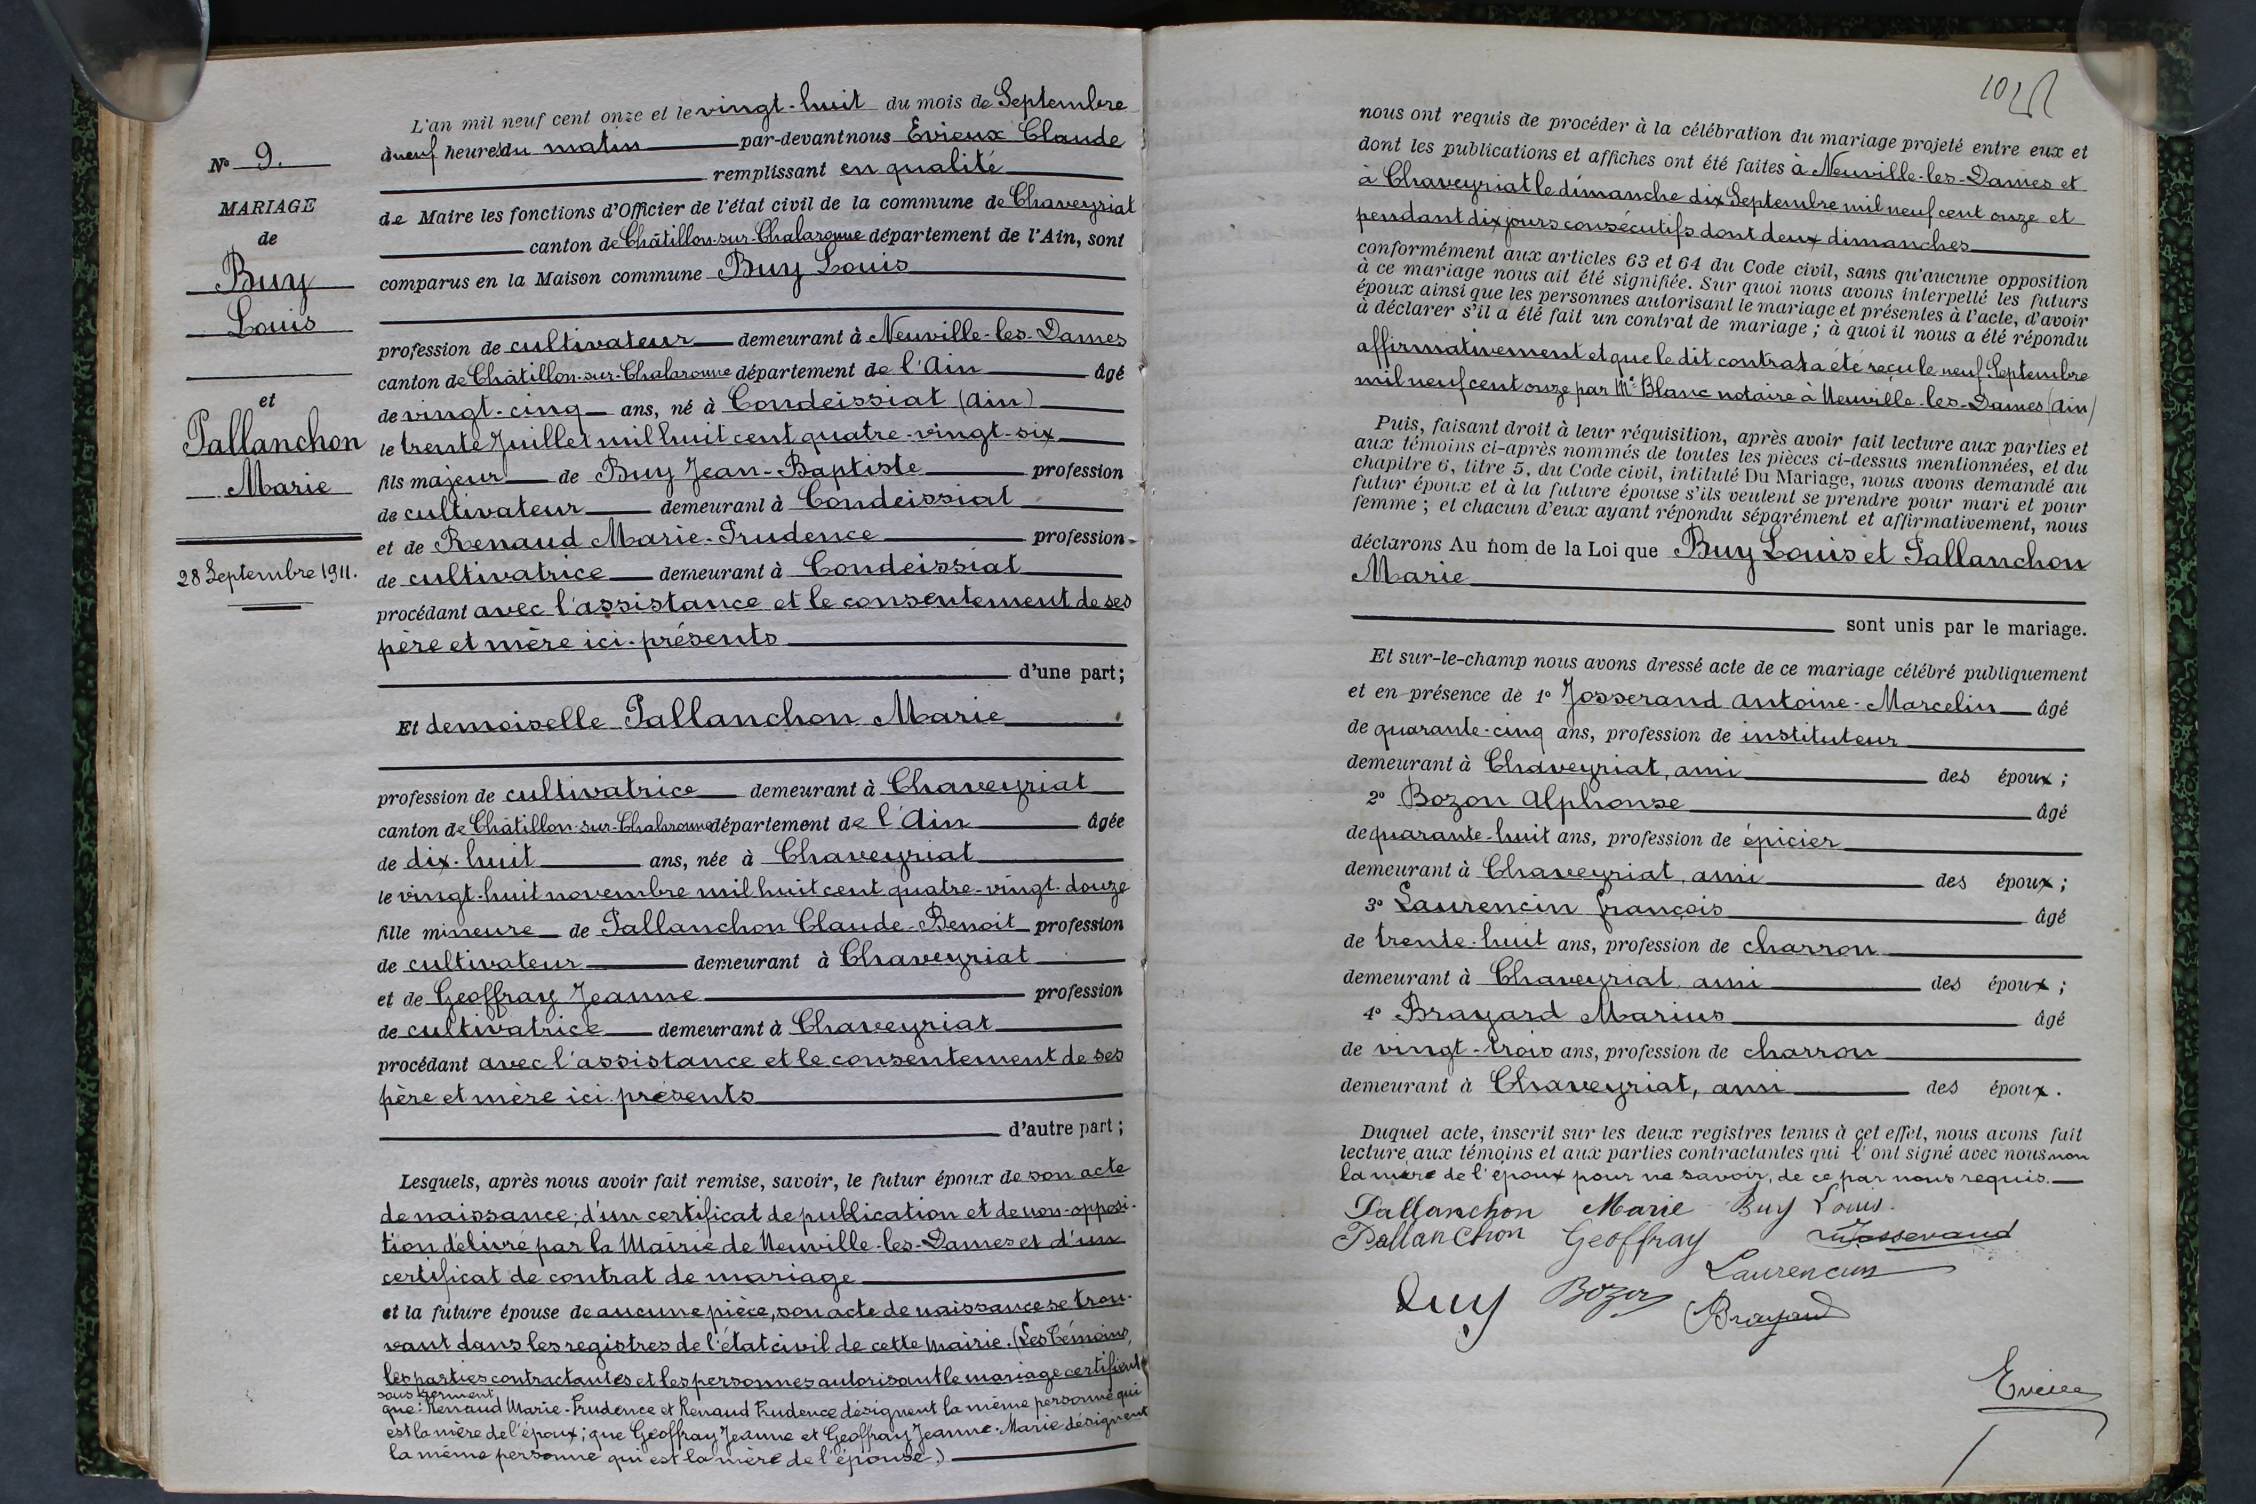 N° 9.
MARIAGE
de
Buy
Louis
et
Pallanchon
Marie
28 Septembre 1911.
L'an mil neuf cent onze et le vingt-huit du mois de Septembre
à neuf heures du matin par-devant nous Evieux Claude
remplissant en qualité
de Maire les fonctions d'Officier de l'état civil de la commune de Chaveyriat
canton de Châtillon-sur-Chalaronne département de l'Ain, sont
comparus en la Maison commune Buy Louis
profession de cultivateur demeurant à Neuville-les-Dames
canton de Châtillon-sur-Chalaronne département de l'Ain âgé
de vingt-cinq ans, né à Condeissiat (Ain)
le trente Juillet mil huit cent quatre-vingt-six
fils majeur de Buy Jean-Baptiste profession
de cultivateur demeurant à Condeissiat
et de Renaud Marie-Prudence profession
de cultivatrice demeurant à Condeissiat
procédant avec l'assistance et le consentement de ses
père et mère ici-présents
d'une part;
Et demoiselle Pallanchon Marie
profession de cultivatrice demeurant à Chaveyriat
canton de Châtillon-sur-Chalaronne département de l'Ain âgée
de dix-huit ans, née à Chaveyriat
le vingt-huit novembre mil huit cent quatre-vingt-douze
fille mineure de Pallanchon Claude-Benoit profession
de cultivateur demeurant à Chaveyriat
et de Geoffray Jeanne profession
de cultivatrice demeurant à Chaveyriat
procédant avec l'assistance et le consentement de ses
père et mère ici présents
d'autre part;
Lesquels, après nous avoir fait remise, savoir, le futur époux de son acte
de naissance; d'un certificat de publication et de non-opposi-
tion délivré par la Mairie de Neuville-les-Dames et d'un
certificat de contrat de mariage
et la future épouse de aucune pièce, son acte de naissance se trou-
vant dans les registres de l'état civil de cette Mairie. (Les témoins,
les parties contractantes et les personnes autorisant le mariage certifient
sous serment
que: Renaud Marie-Prudence et Renaud Prudence désignent la même personne qui
est la mère de l'époux; que Geoffray Jeanne et Geoffray Jeanne-Marie désignent
la même personne qui est la mère de l'épouse.)
nous ont requis de procéder à la célébration du mariage projeté entre eux et
dont les publications et affiches ont été faites à Neuville-les-Dames et
à Chaveyriat le dimanche dix Septembre mil neuf cent onze et
pendant dix jours consécutifs dont deux dimanches
conformément aux articles 63 et 64 du Code civil, sans qu'aucune opposition
à ce mariage nous ait été signifiée. Sur quoi nous avons interpellé les futurs
époux ainsi que les personnes autorisant le mariage et présentes à l'acte, d'avoir
à déclarer s'il a été fait un contrat de mariage; à quoi il nous a été répondu
affirmativement et que le dit contrat a été reçu le neuf Septembre
mil neuf cent onze par Me Blanc notaire à Neuville-les-Dames (Ain)
Puis, faisant droit à leur réquisition, après avoir fait lecture aux parties et
aux témoins ci-après nommés de toutes les pièces ci-dessus mentionnées, et du
chapitre 6, titre 5, du Code civil, intitulé Du Mariage, nous avons demandé au
futur époux et à la future épouse s'ils veulent se prendre pour mari et pour
femme; et chacun d'eux ayant répondu séparément et affirmativement, nous
déclarons Au nom de la Loi que Buy Louis et Pallanchon
Marie
sont unis par le mariage.
Et sur-le-champ nous avons dressé acte de ce mariage célébré publiquement
et en présence de 1° Josserand Antoine-Marcelin âgé
de quarante-cinq ans, profession de instituteur
demeurant à Chaveyriat, ami des époux;
2° Bozon Alphonse âgé
de quarante-huit ans, profession de épicier
demeurant à Chaveyriat, ami des époux;
3° Laurencin françois âgé
de trente-huit ans, profession de charron
demeurant à Chaveyriat ami des époux;
4° Brayard Marius âgé
de vingt-trois ans, profession de charron
demeurant à Chaveyriat, ami des époux.
Duquel acte, inscrit sur les deux registres tenus à cet effet, nous avons fait
lecture aux témoins et aux parties contractantes qui l'ont signé avec nous non
la mère de l'époux pour ne savoir, de ce par nous requis.
Pallanchon Marie Buy Louis.
Pallanchon Geoffray Josserand
Laurencin
Buy Bozon
Brayard
Evieux